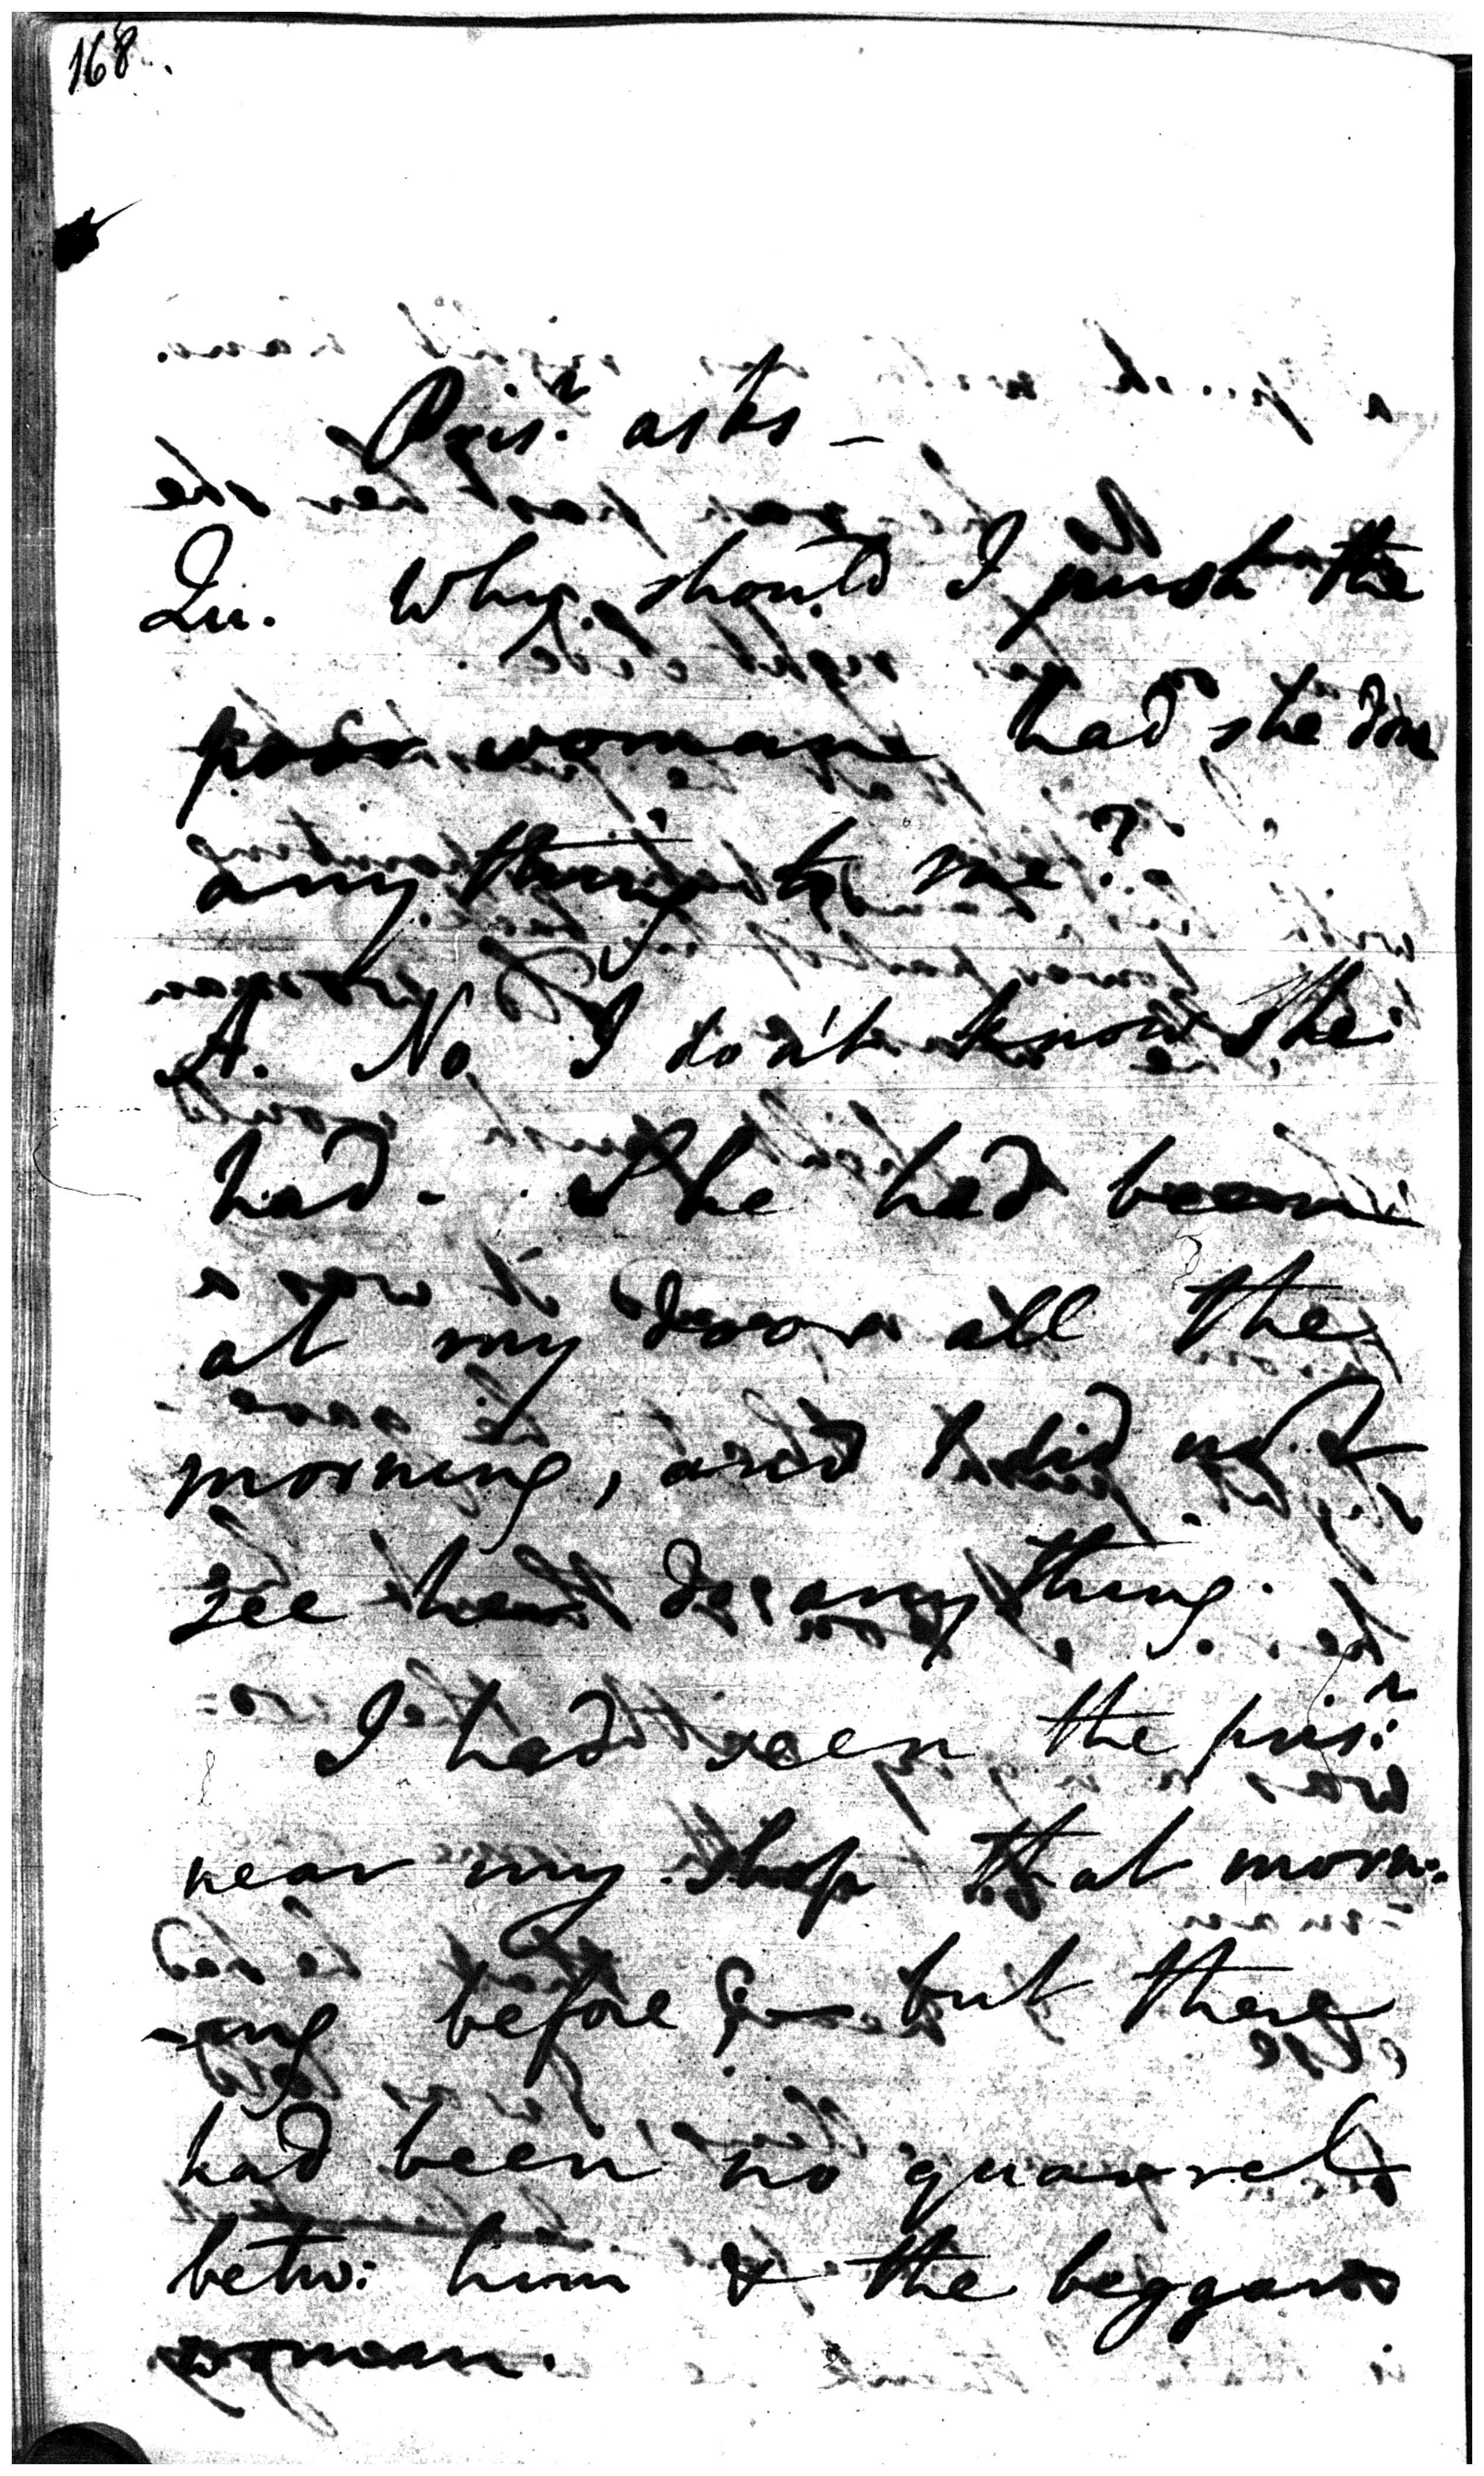 168.
Pris.r asks -
Qu. Why should I push the
poor woman had she done
any thing to me?
A. No I don't know she
had - She had been
at my door all the
morning, and I did not
see her do any thing.
I had seen the pris:r
near my shop that morn:
-ing before, but there
had been no quarrel
betw: him & the beggar
woman.